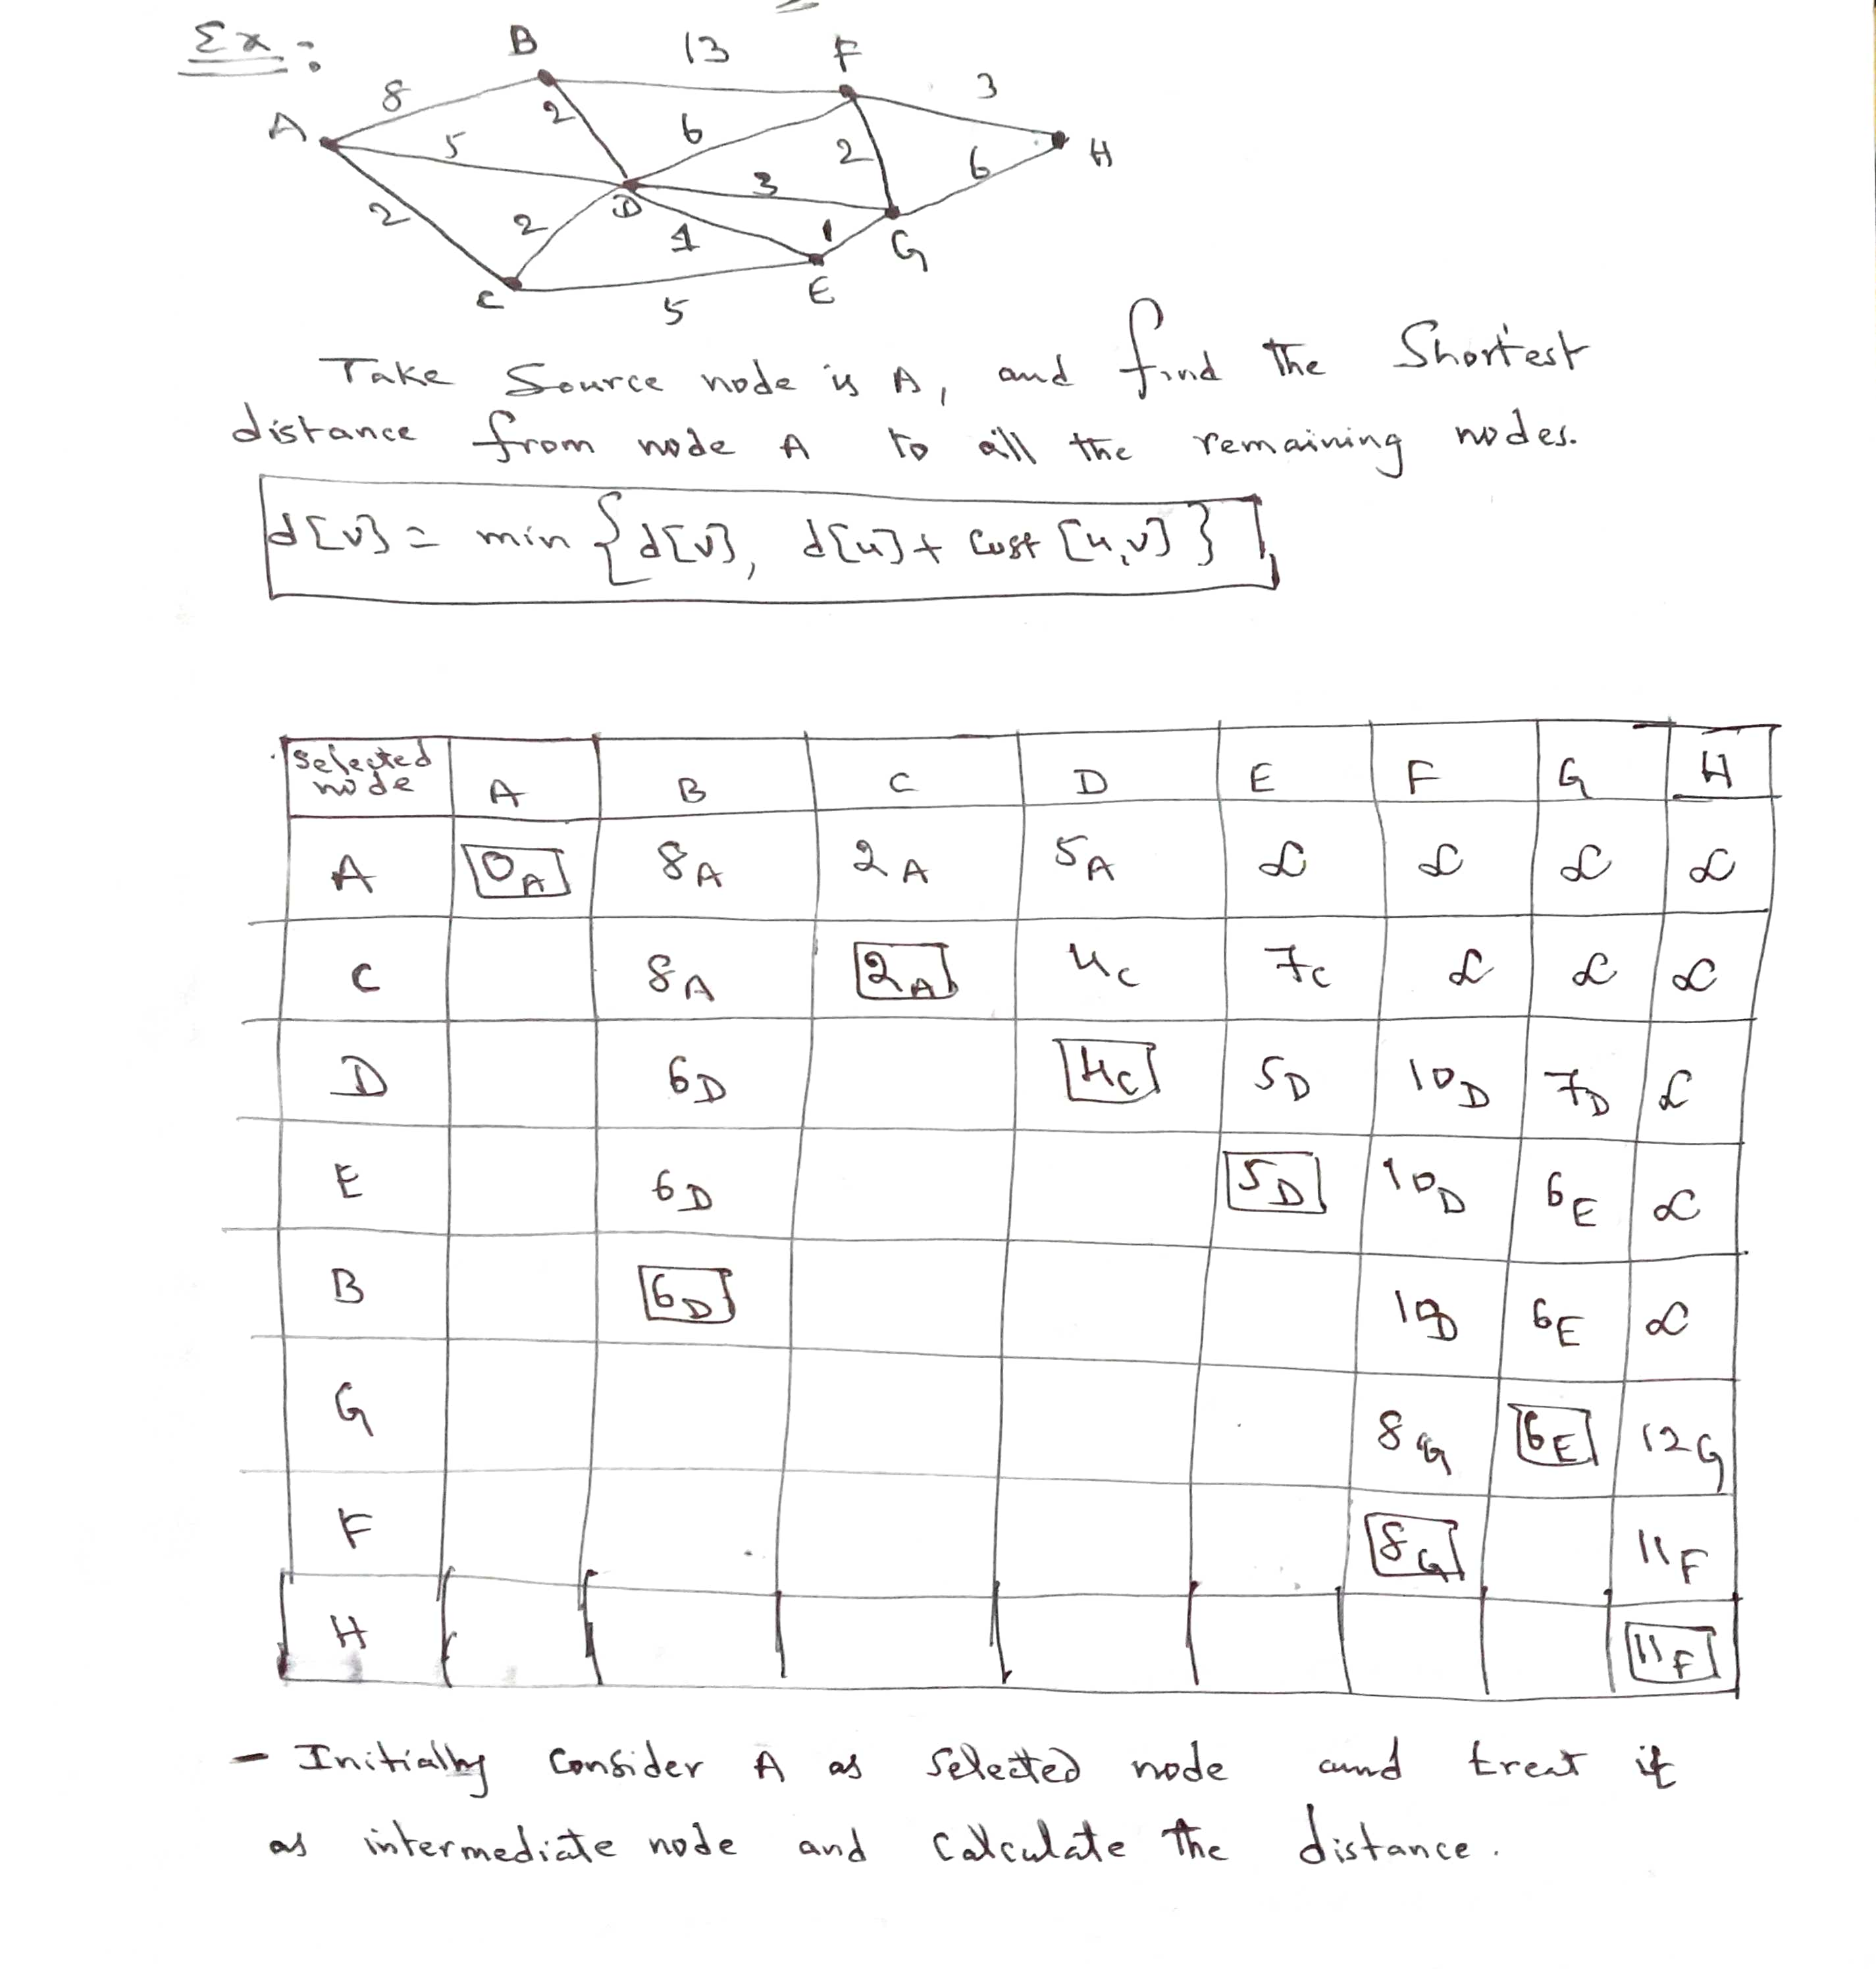 Ex:
B 13 F
8 2 6 3
A 5 2 H
2 2 D 3 6
1 1 G
C 5 E
Take Source node is A, and find the Shortest
distance from node A to all the remaining nodes.
d[v] = min { d[v], d[u] + Cost [u,v] }
Selected node A B C D E F G H
A 0A 8A 2A 5A ∞ ∞ ∞ ∞
C 8A 2A 4C 7C ∞ ∞ ∞
D 6D 4C 5D 10D 7D ∞
E 6D 5D 10D 6E ∞
B 6D 10D 6E ∞
G 8G 6E 12G
F 8G 11F
H 11F
- Initially Consider A as Selected node and treat it
as intermediate node and Calculate the distance.